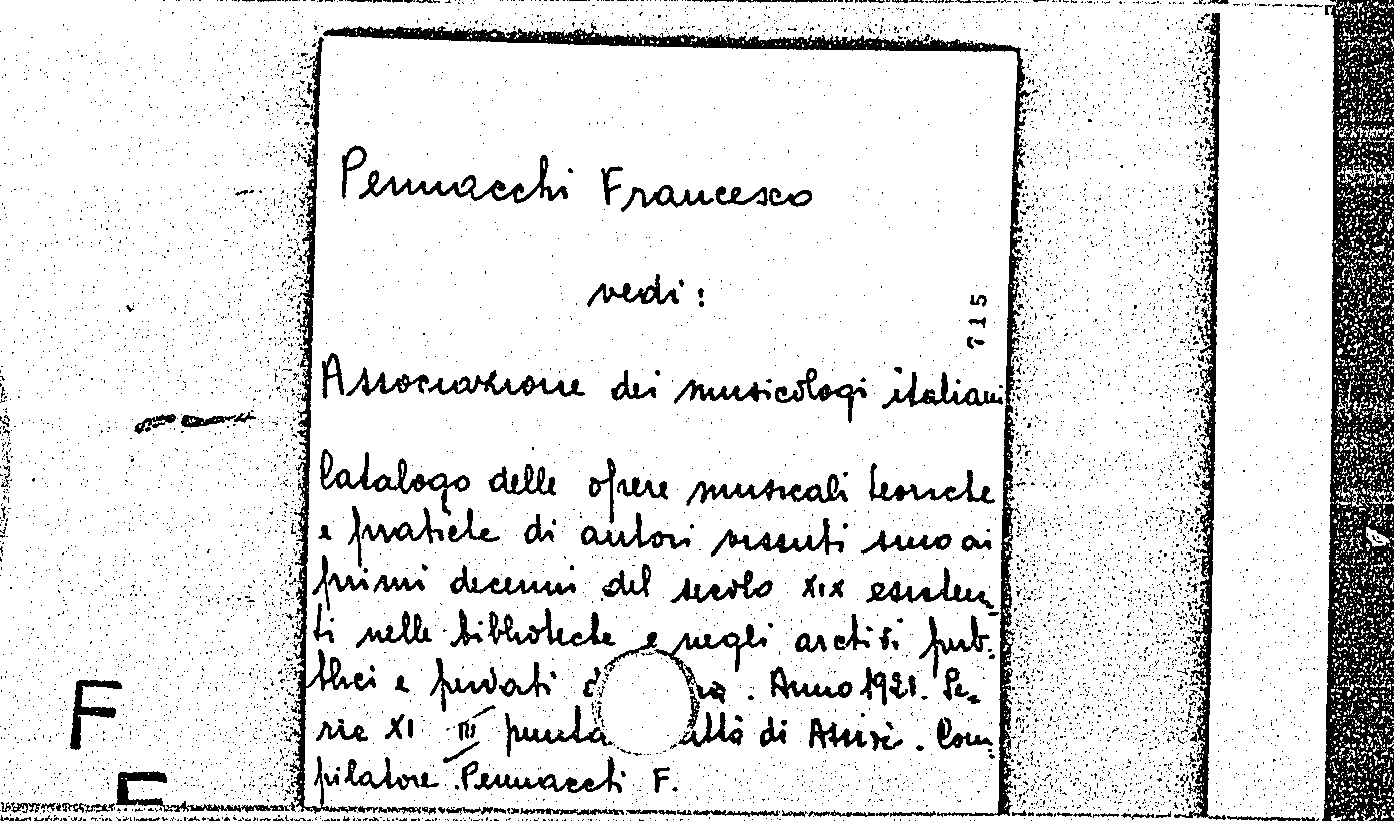 Pennacchi Francesco
vedi:
715
Associazione dei musicologi italiani
Catalogo delle opere musicali teoriche
e pratiche di autori vissuti sino ai
primi decenni del secolo XIX esisten-
ti nelle biblioteche e negli archivi pub-
blici e privati . Anno 1921. Se-
rie XI III puntata di Assisi. Com-
pilatore Pennacchi F.
F
F